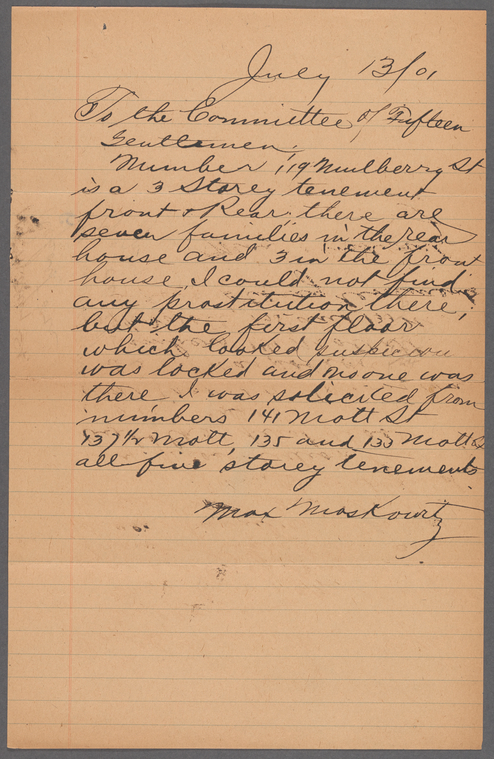 July 13/01
To the Committee of Fifteen
Gentlemen,
Number 119 Mulberry St
is a 3 Storey tenement
front & Rear, there are
seven families in the rear
house and 3 in the front
house I could not find
any prostitution there,
but the first floor
which looked suspicion
was locked and no one was
there I was solicited from
numbers 141 Mott St
137 1/2 Mott, 135 and 133 Mott St
all five storey tenements
Max Moskowitz